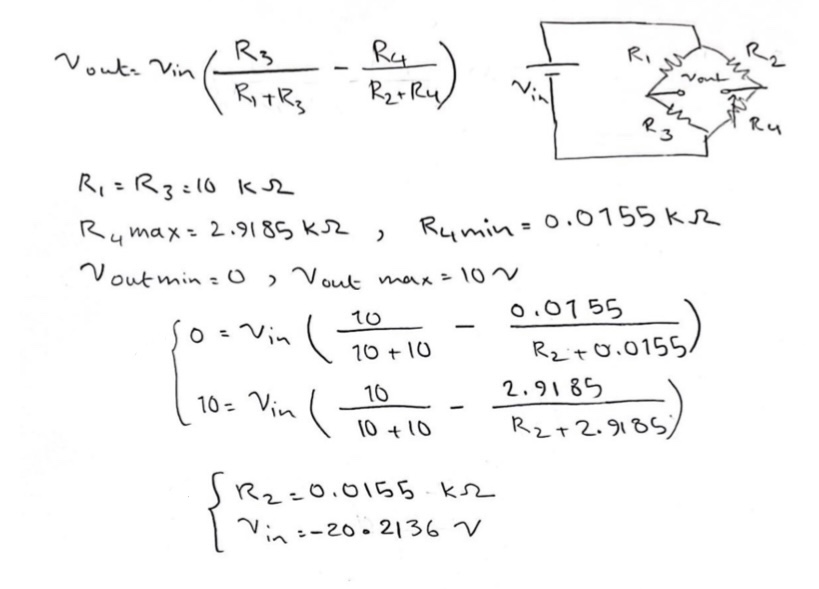 Vout = Vin ( R3 / (R1+R3) − R4 / (R2+R4) )
R1
R2
Vout
Vin
R3
R4
R1 = R3 = 10 KΩ
R4 max = 2.9185 kΩ , R4 min = 0.0155 kΩ
Vout min = 0 , Vout max = 10 V
{ 0 = Vin ( 10 / (10+10) − 0.0155 / (R2 + 0.0155) )
10 = Vin ( 10 / (10+10) − 2.9185 / (R2 + 2.9185) )
{ R2 = 0.0155 kΩ
Vin = -20.2136 V